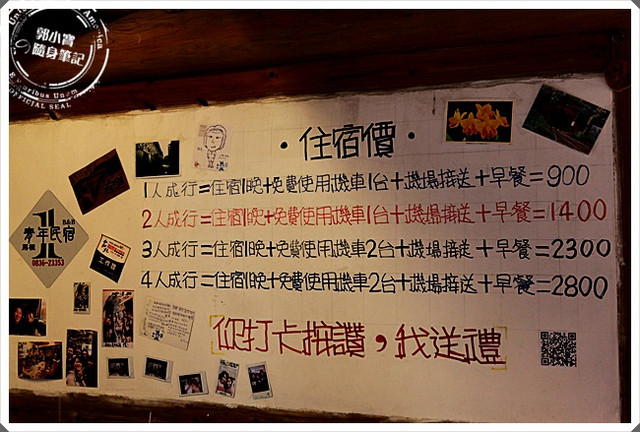 郭小寶
の隨身筆記
America
E Pluribus Unum
OFFICIAL SEAL
·住宿價·
1人成行=住宿1晚+免費使用機車1台+機場接送+早餐=900
2人成行=住宿1晚+免費使用機車1台+機場接送+早餐=1400
3人成行=住宿1晚+免費使用機車2台+機場接送+早餐=2300
4人成行=住宿1晚+免費使用機車2台+機場接送+早餐=2800
B&B
青年民宿
馬祖
0836-23353
工作證
[你打卡按讚,我送禮]